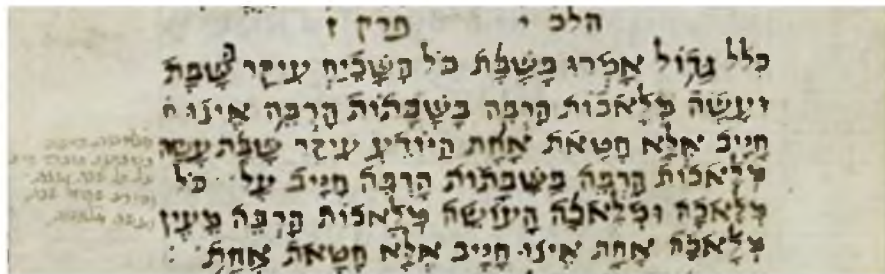 הלכ י פרק ז
כלל גדול אמרו בשבת כל השכיח עיקר שבת
ועשה מלאכות הרבה בשבתות הרבה אינו ח
חייב אלא חטאת אחת היודיע עיקר שבת עשה
מלאכות הרבה בשבתות הרבה חייב על כל
מלאכה ומלאכה העושה מלאכות הרבה מעין
מלאכה אחת אינו חייב אלא חטאת אחת :